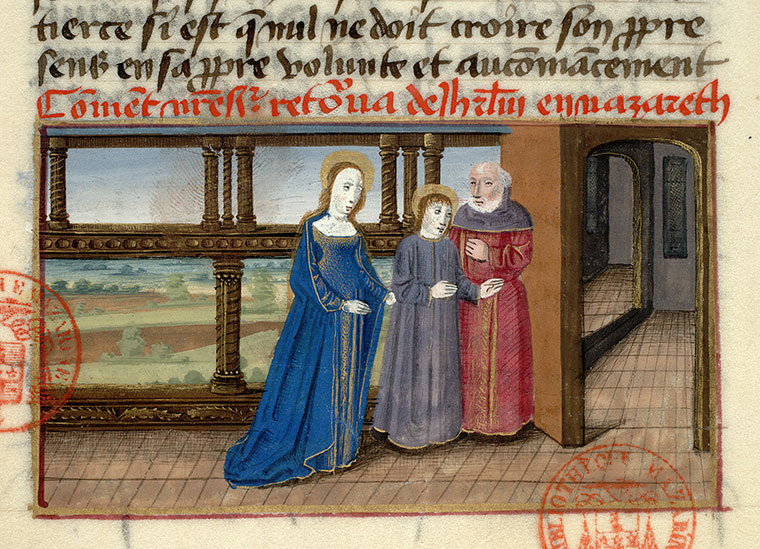 tierce si est q̄ nul ne doit croire son ꝓpre
sens en sa ꝓpre volunte et au com̄ancement
Com̄ēt nr̄e sr̄ retoʳna de ihrl̄m en nazareth